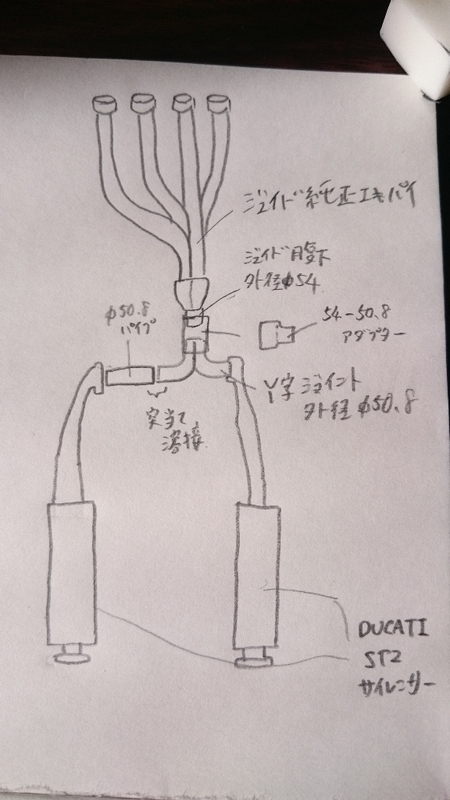 ジェイド純正エキパイ
ジェイド腹下
外径φ54
φ50.8
パイプ
54-50.8
アダプター
Y字ジョイント
外径φ50.8
突当て
溶接
DUCATI
ST2
サイレンサー